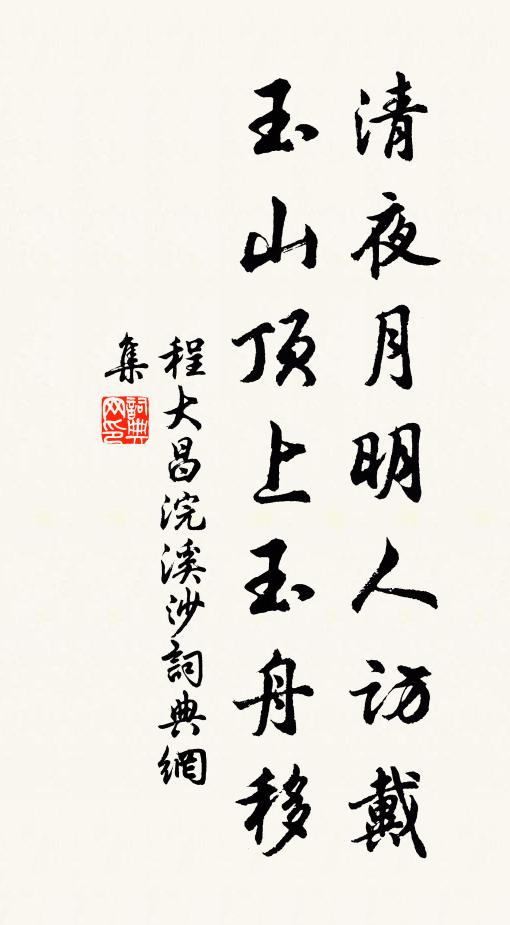 清夜月明人访戴
玉山顶上玉舟移
程大昌浣溪沙詞典網
集
詞典网印